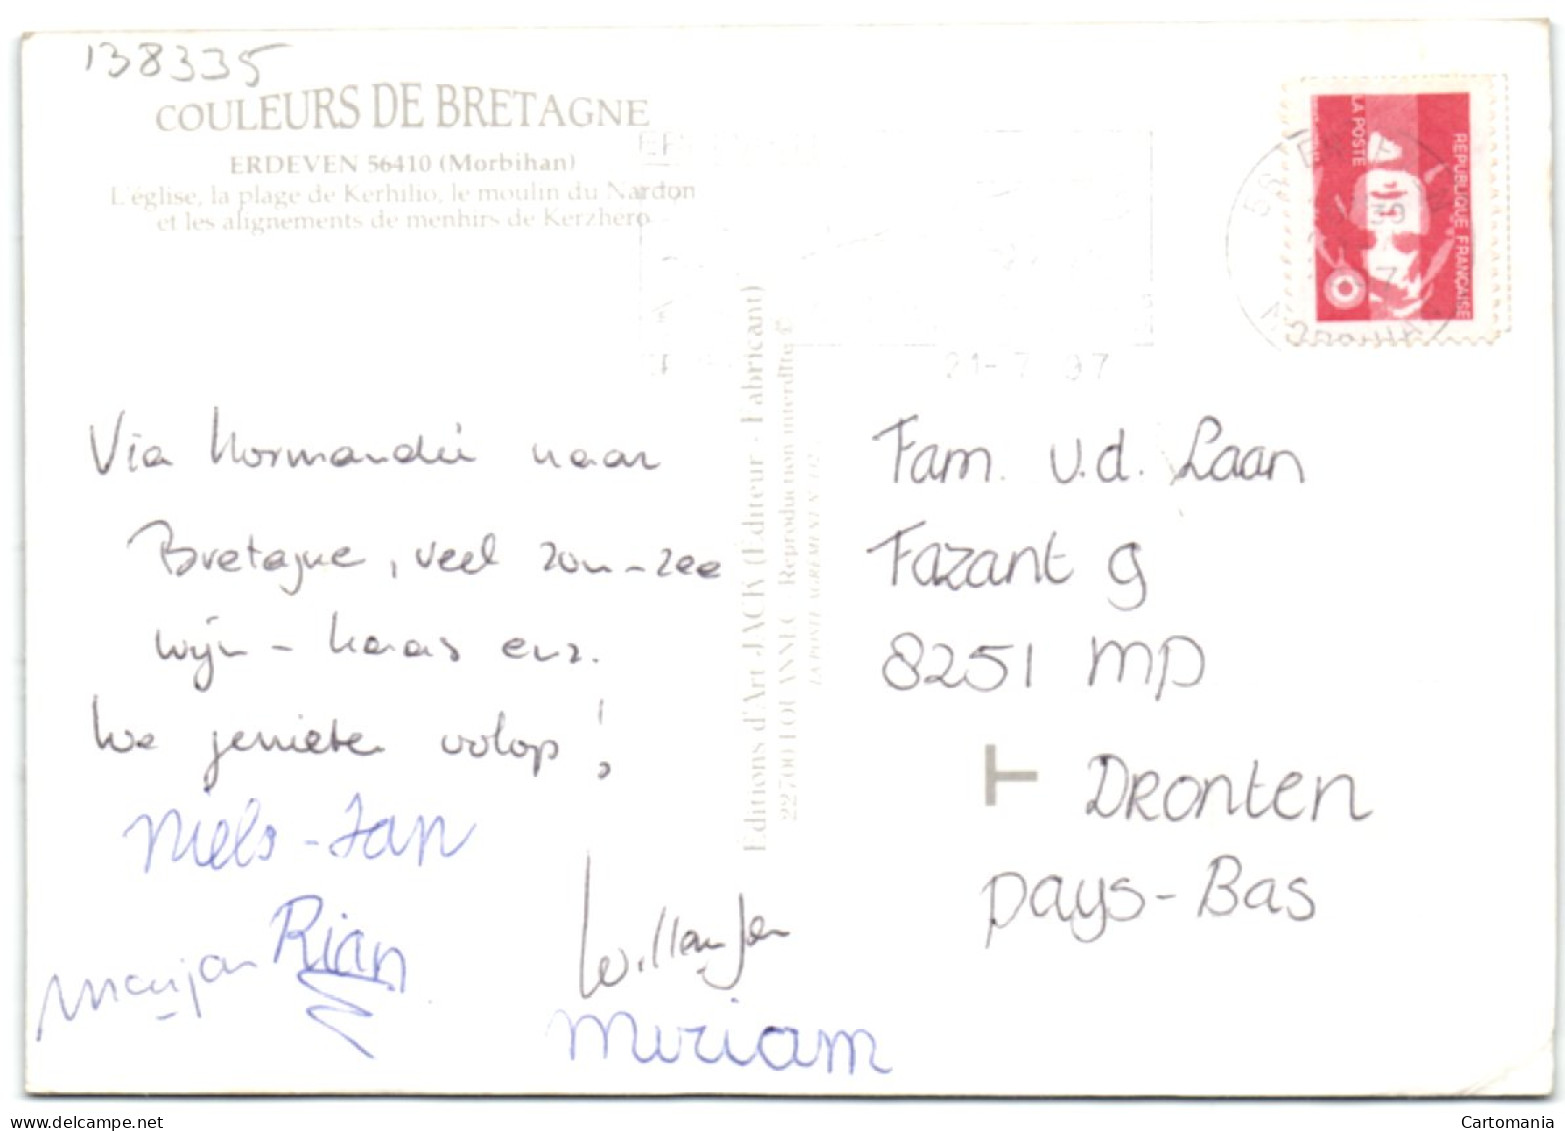 138335
COULEURS DE BRETAGNE
ERDEVEN 56410 (Morbihan)
L'église, la plage de Kerhilio, le moulin du Nardon
et les alignements de menhirs de Kerzhero
LA POSTE
REPUBLIQUE FRANÇAISE
21-7 97
MORBIHAN
Editions d'Art JACK (Editeur - Fabricant)
22700 LOUANNEC - Reproduction interdite ©
LA POSTE AGREMENT N°
Via Normandië naar
Bretagne, veel zon-zee
wijn - kaas enz.
We genieten volop!
Niels-Jan
Rian
Marijan
Willem Jan
Miriam
Fam. v.d. Laan
Fazant 9
8251 MP
T
DRONTEN
Pays-Bas
Cartomania